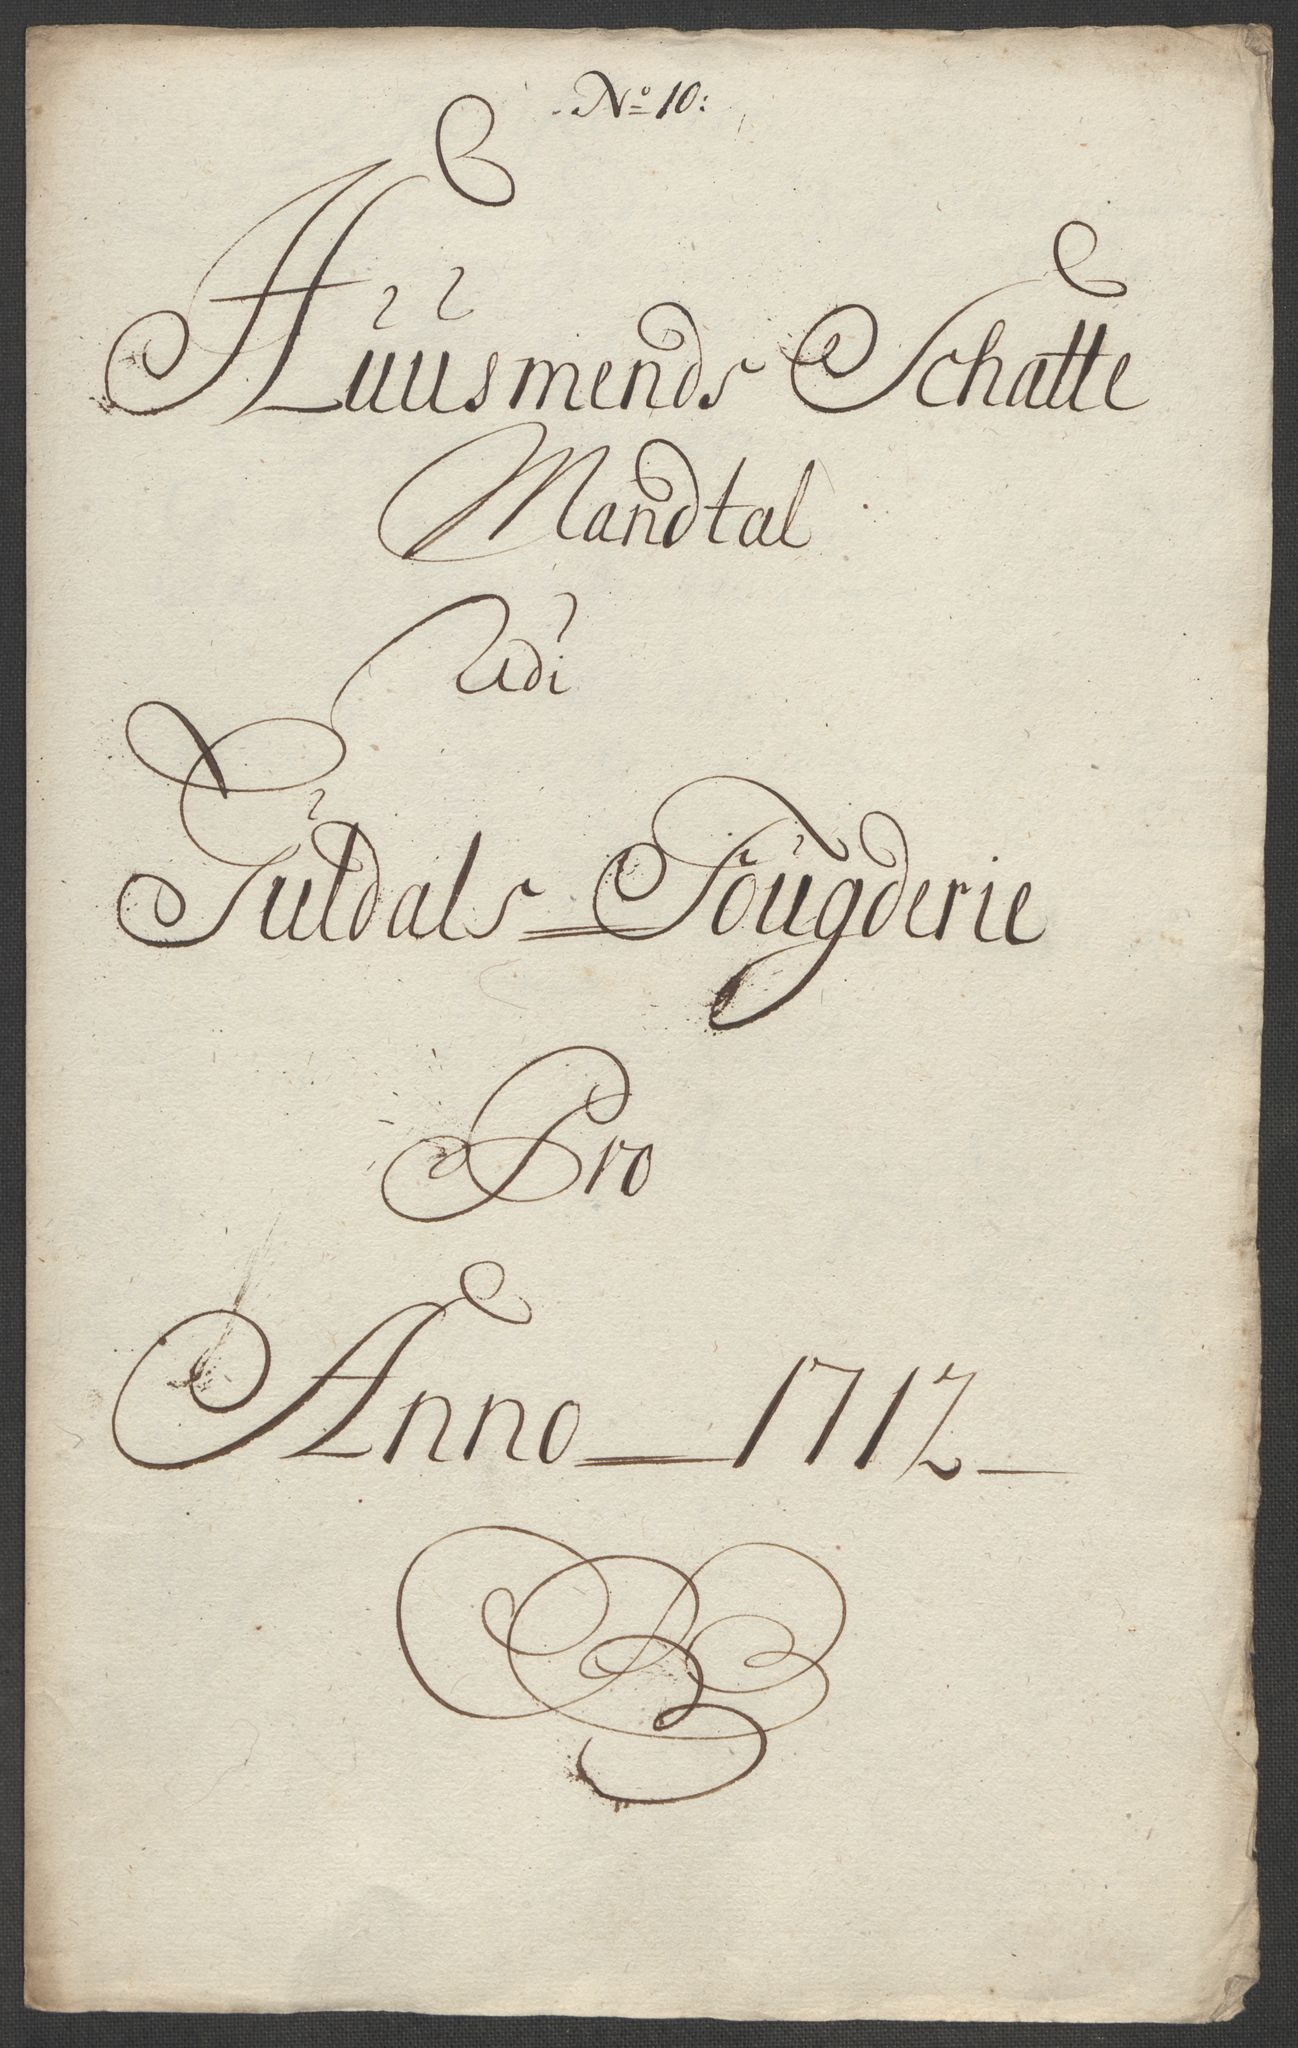 No 10:
Huusmends Schatte
Mandtal
Udi
Guldals Fougderie
Pro
Anno 1712